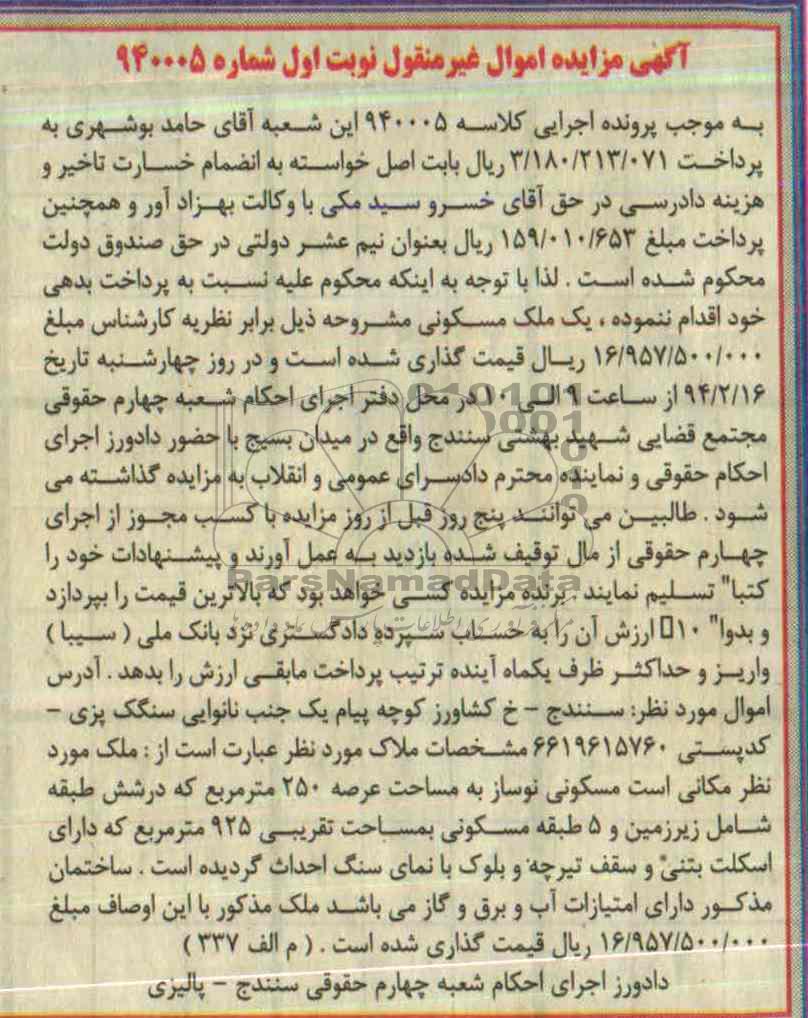 آگهی مزایده اموال غیرمنقول نوبت اول شماره ۹۴۰۰۰۵
به موجب پرونده اجرایی کلاسه ۹۴۰۰۰۵ این شعبه آقای حامد بوشهری به
پرداخت ۳/۱۸۰/۲۱۳/۰۷۱ ریال بابت اصل خواسته به انضمام خسارت تاخیر و
هزینه دادرسی در حق آقای خسرو سید مکی با وکالت بهزاد آور و همچنین
پرداخت مبلغ ۱۵۹/۰۱۰/۶۵۳ ریال بعنوان نیم عشر دولتی در حق صندوق دولت
محکوم شده است . لذا با توجه به اینکه محکوم علیه نسبت به پرداخت بدهی
خود اقدام ننموده ، یک ملک مسکونی مشروحه ذیل برابر نظریه کارشناس مبلغ
۱۶/۹۵۷/۵۰۰/۰۰۰ ریال قیمت گذاری شده است و در روز چهارشنبه تاریخ
۹۴/۲/۱۶ از ساعت ۹ الی ۱۰ در محل دفتر اجرای احکام شعبه چهارم حقوقی
مجتمع قضایی شهید بهشتی سنندج واقع در میدان بسیج با حضور دادورز اجرای
احکام حقوقی و نماینده محترم دادسرای عمومی و انقلاب به مزایده گذاشته می
شود . طالبین می توانند پنج روز قبل از روز مزایده با کسب مجوز از اجرای
چهارم حقوقی از مال توقیف شده بازدید به عمل آورند و پیشنهادات خود را
ParsNamadData
کتبا" تسلیم نمایند . برنده مزایده کسی خواهد بود که بالاترین قیمت را بپردازد
و بدوا" ۱۰ ارزش آن را به حساب سپرده دادگستری نزد بانک ملی ( سیبا )
واریز و حداکثر ظرف یکماه آینده ترتیب پرداخت مابقی ارزش را بدهد . آدرس
اموال مورد نظر: سنندج – خ کشاورز کوچه پیام یک جنب نانوایی سنگک پزی –
کدپستی ۶۶۱۹۶۱۵۷۶۰ مشخصات ملاک مورد نظر عبارت است از : ملک مورد
نظر مکانی است مسکونی نوساز به مساحت عرصه ۲۵۰ مترمربع که درشش طبقه
شامل زیرزمین و ۵ طبقه مسکونی بمساحت تقریبی ۹۲۵ مترمربع که دارای
اسکلت بتنی و سقف تیرچه و بلوک با نمای سنگ احداث گردیده است . ساختمان
مذکور دارای امتیازات آب و برق و گاز می باشد ملک مذکور با این اوصاف مبلغ
۱۶/۹۵۷/۵۰۰/۰۰۰ ریال قیمت گذاری شده است . ( م الف ۳۳۷ )
دادورز اجرای احکام شعبه چهارم حقوقی سنندج – پالیزی